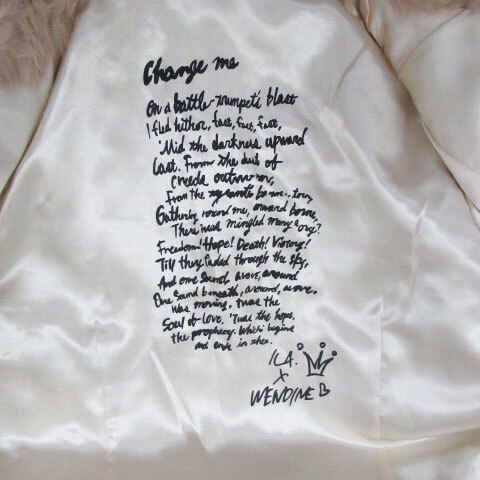 Change me
On a battle-trumpet's blast
I fled hither, fast, fast, fast,
'Mid the darkness upward
Cast. From the dust of
Creeds outworn,
From the tyrants banner, torn
Gathering round me, onward borne,
There was mingled many
Freedom! Hope! Death! Victory!
Till they faded through the sky,
And one sound above, around
One sound beneath, around, above,
Was moving, 'twas the
Soul of love, 'Twas the hope,
the prophecy. Which begins
and ends in thee.
WENDINE